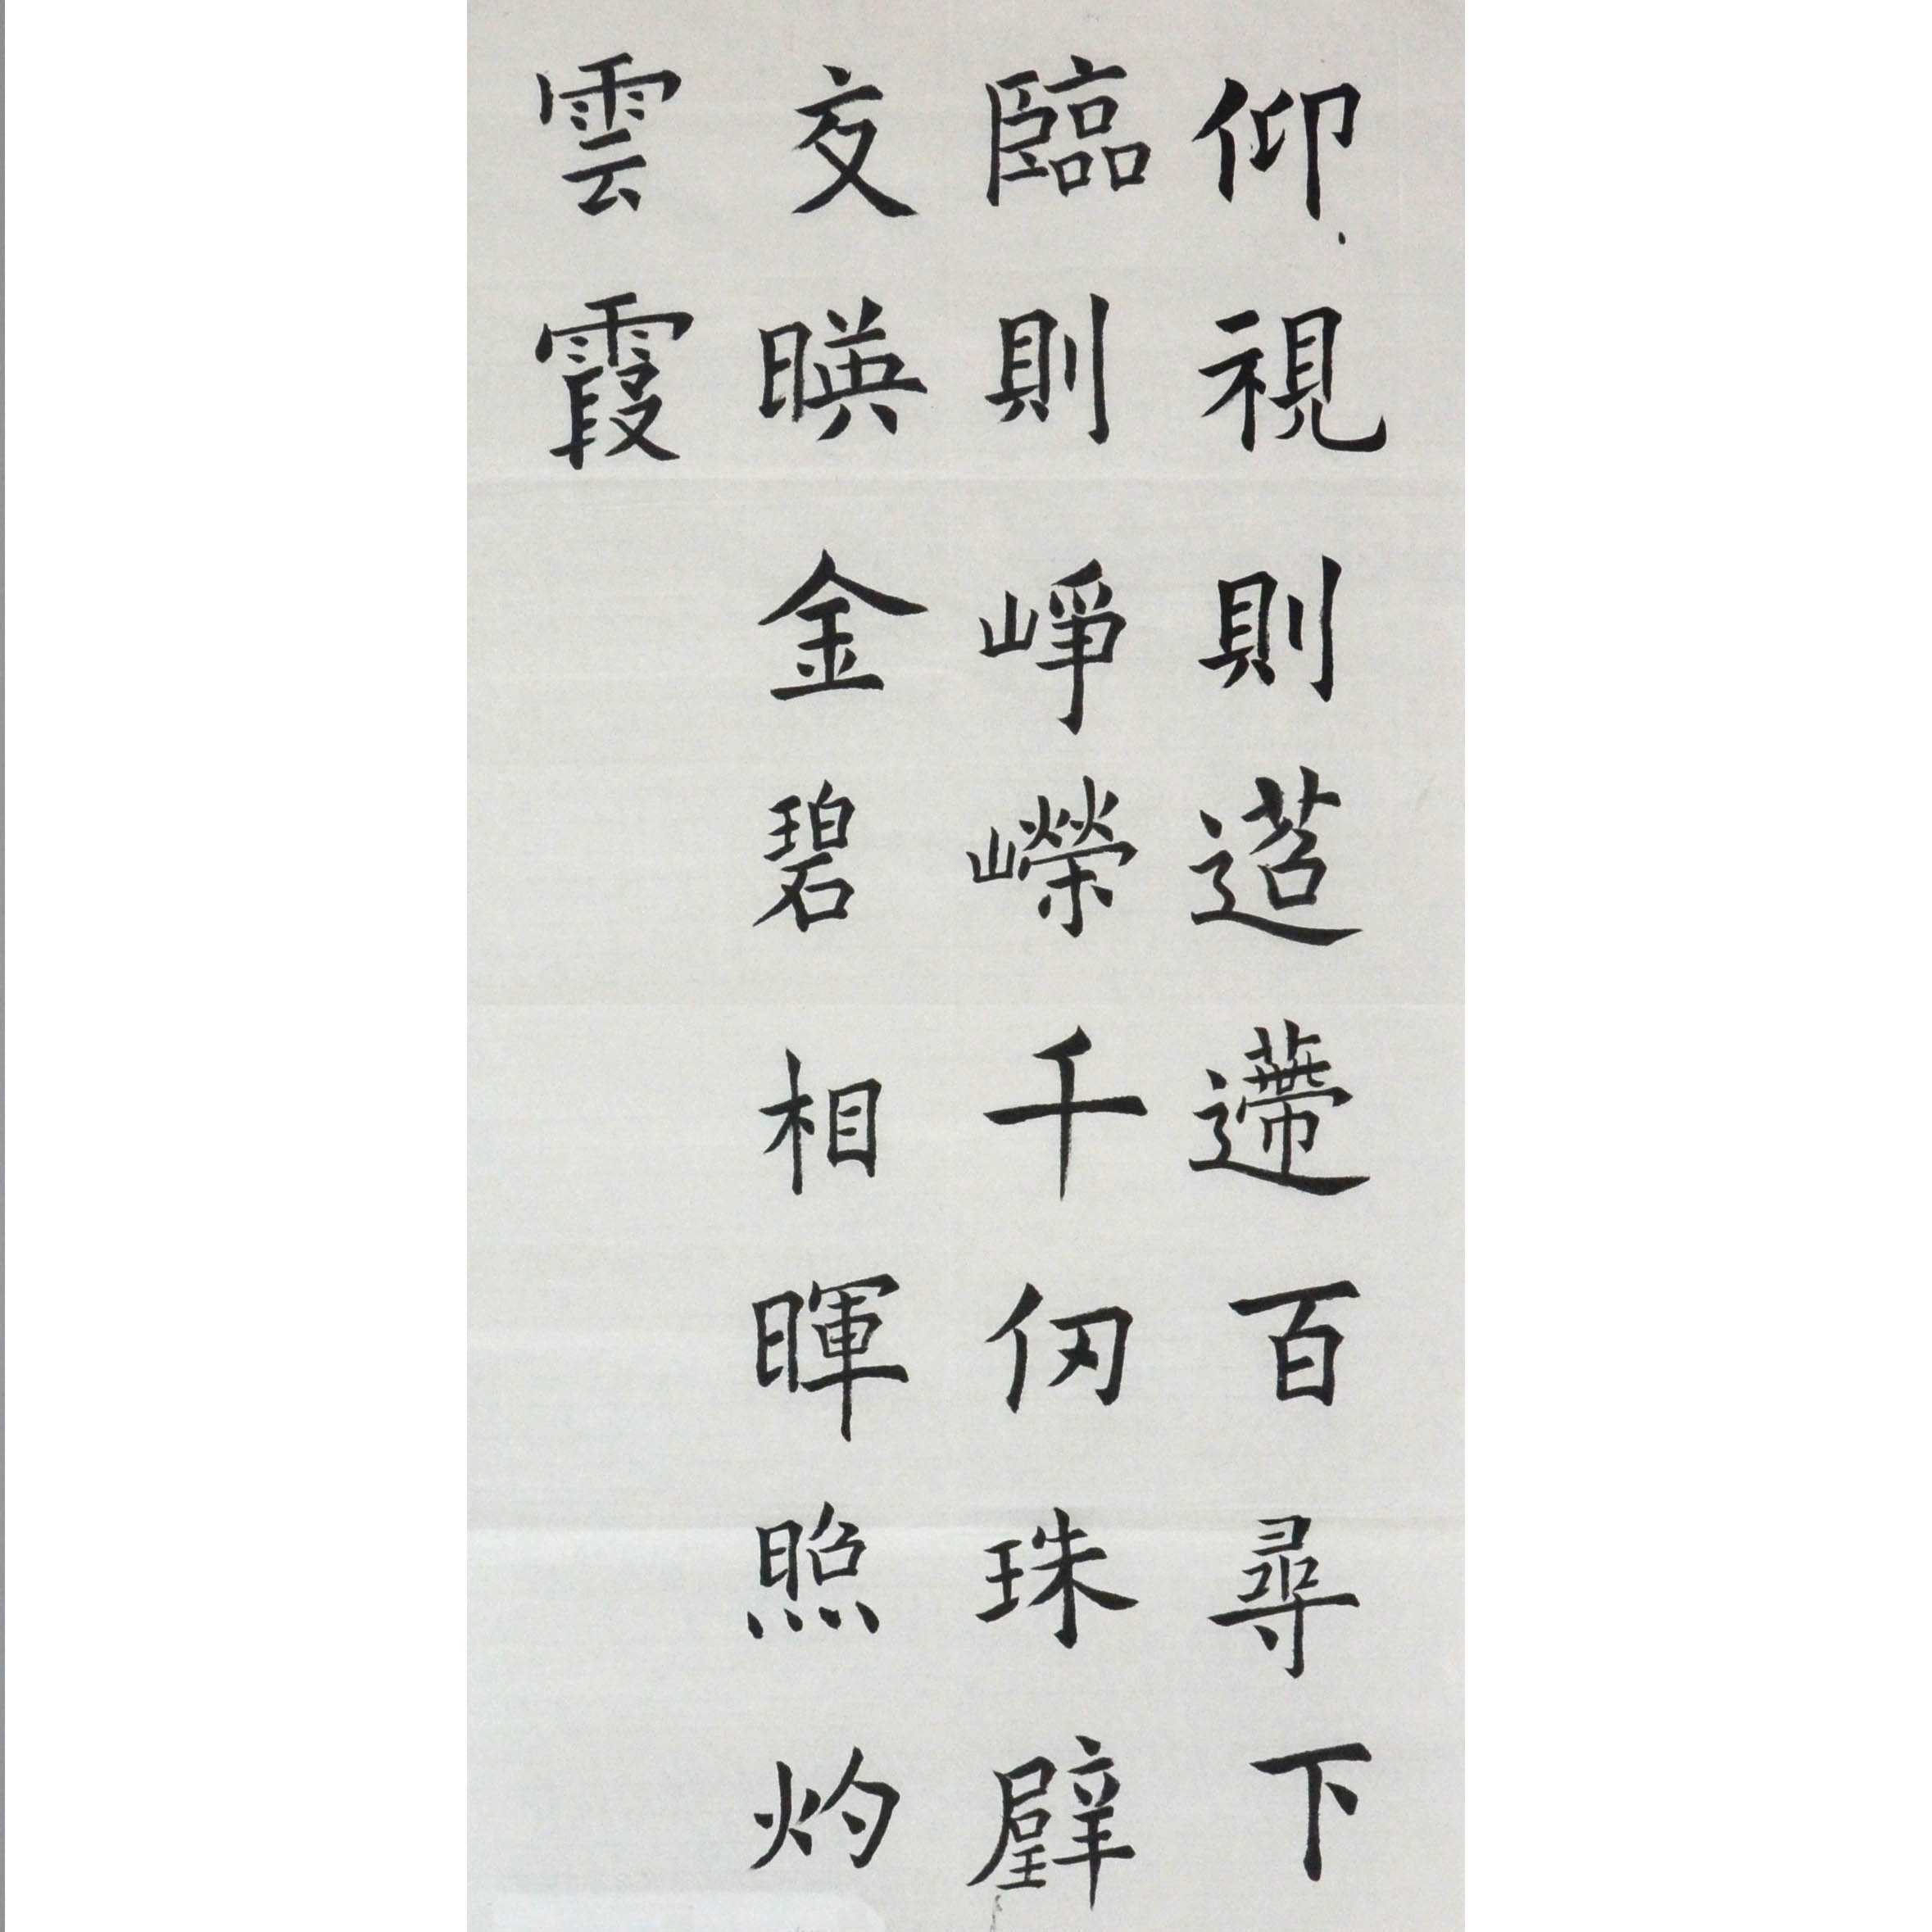 仰視則迢遰百尋下
臨則崢嶸千仞珠璧
交暎金碧相暉照灼
雲霞